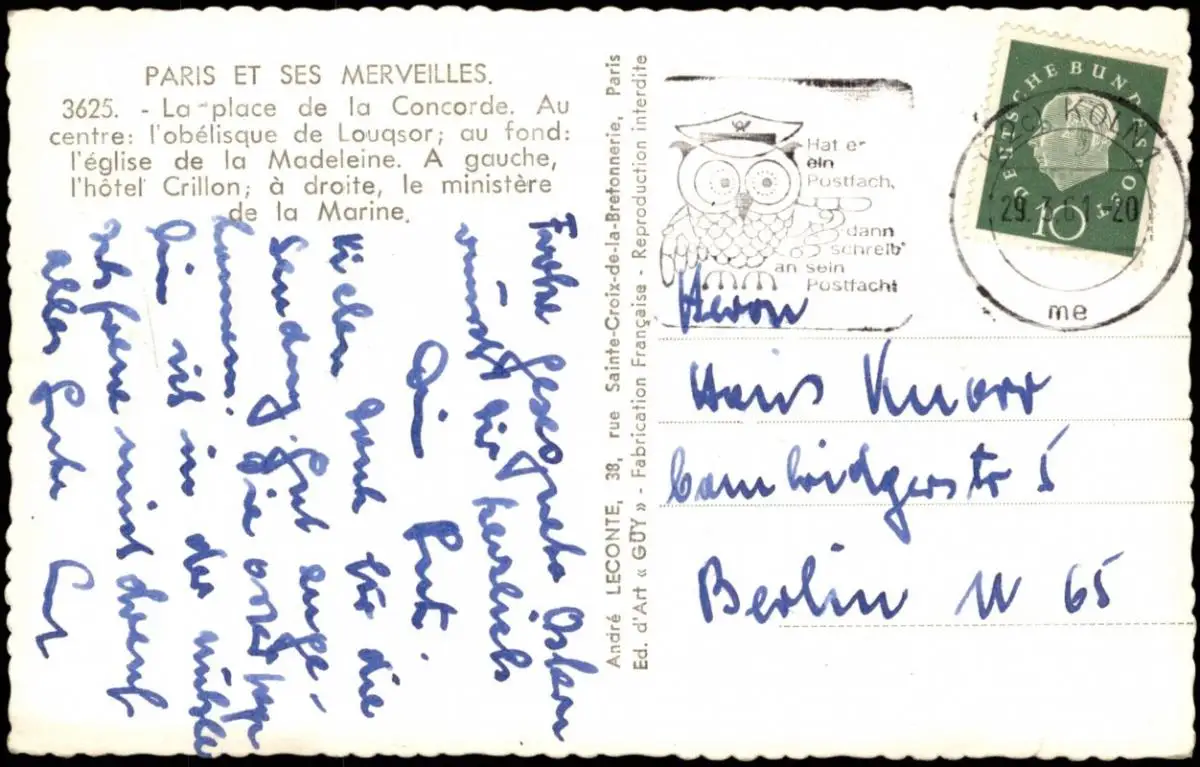 PARIS ET SES MERVEILLES.
3625. - La place de la Concorde. Au
centre: l'obélisque de Louqsor; au fond:
l'église de la Madeleine. A gauche,
l'hôtel Crillon; à droite, le ministère
de la Marine.
Frohe gesegnete Ostern
wünscht Dir herzlich
Vielen Dank für die
Sendung. Gut ange-
kommen. Die
bin ich in der
alles Gute
André LECONTE, 38, rue Sainte-Croix-de-la-Bretonnerie, Paris
Ed. d'Art « GUY » - Fabrication Française - Reproduction interdite
Hat er
ein
Postfach,
dann
schreib'
an sein
Postfach!
DEUTSCHE BUNDESPOST
10
KÖLN
29.3.61-20
me
Herrn
Hans Knorr
Cambridgerstr 5
Berlin N 65